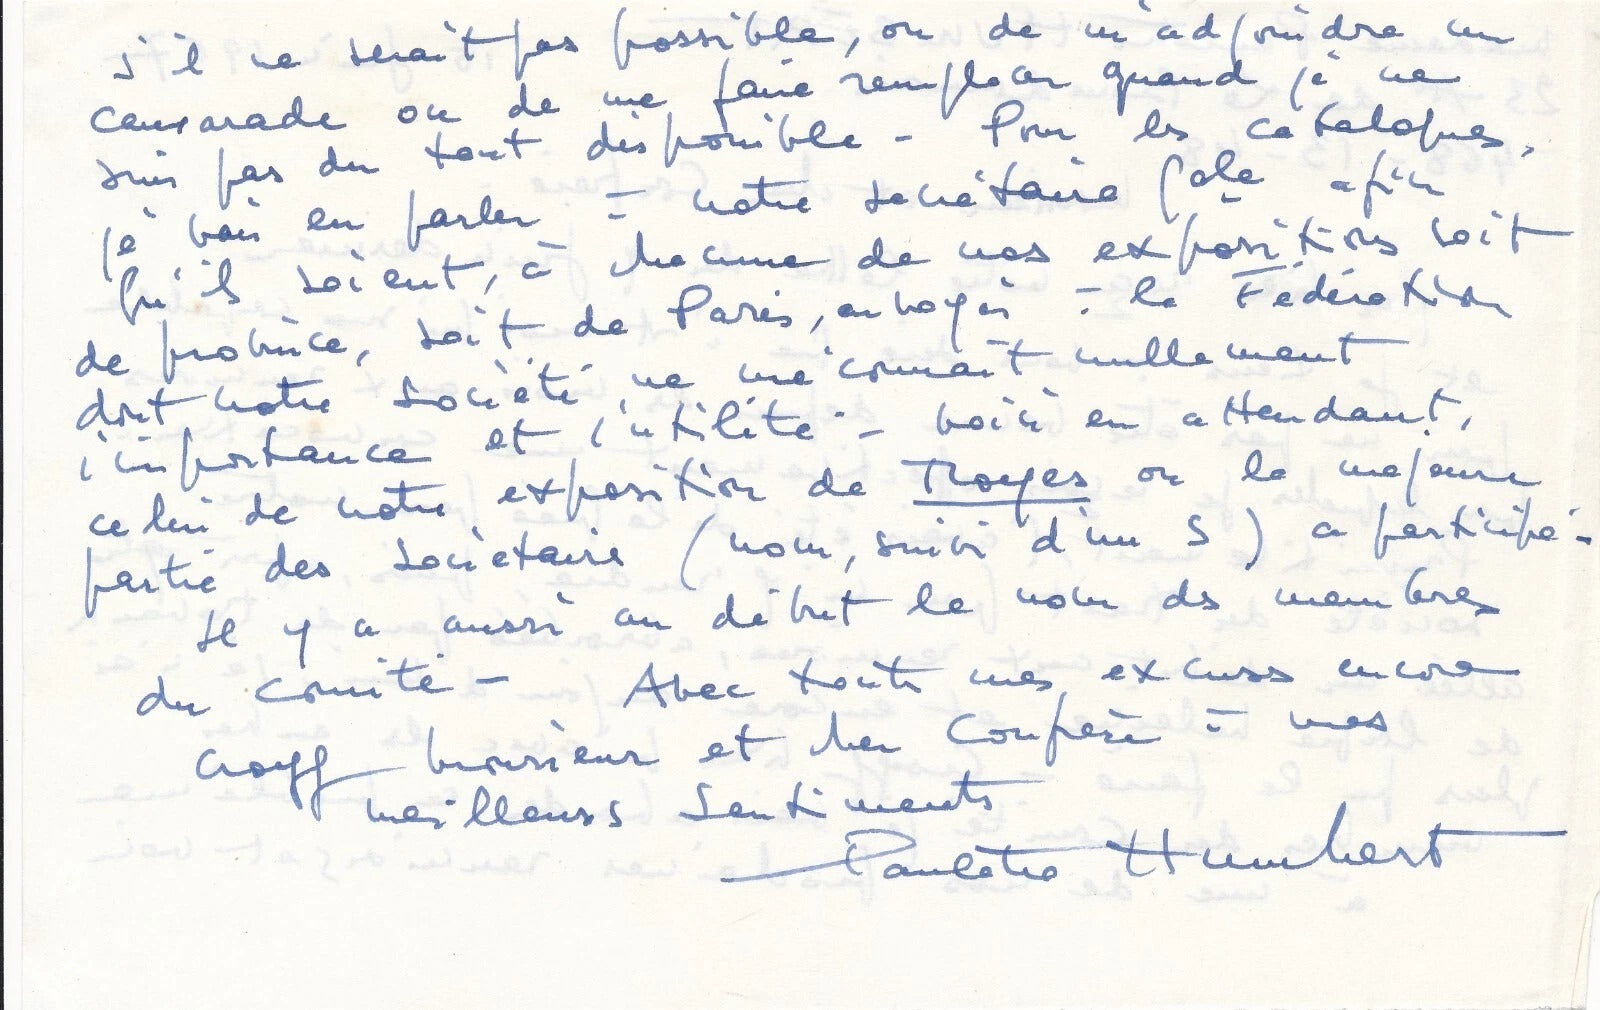 s'il ne serait pas possible, ou de m'adjoindre un
camarade ou de me faire remplacer quand je ne
suis pas du tout disponible - Pour les catalogues,
je vais en parler à notre secrétaire Gale afin
qu'ils soient, à chacune de nos expositions soit
de province, soit de Paris, envoyés à la Fédération
dont notre Société, ne méconnait nullement
l'importance et l'utilité - voici en attendant,
celui de notre exposition de Troyes ou la majeure
partie des Sociétaires (nom, suivi d'un S) a participé -
Il y a aussi au début le nom des membres
du comité - Avec toutes mes excuses encore
croyez Monsieur et cher Confrère à mes
meilleurs sentiments
Paulette Humbert